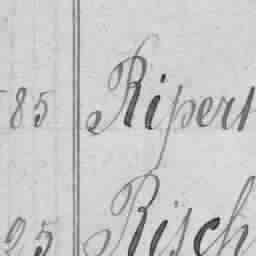 85 Ripert
25 Risch